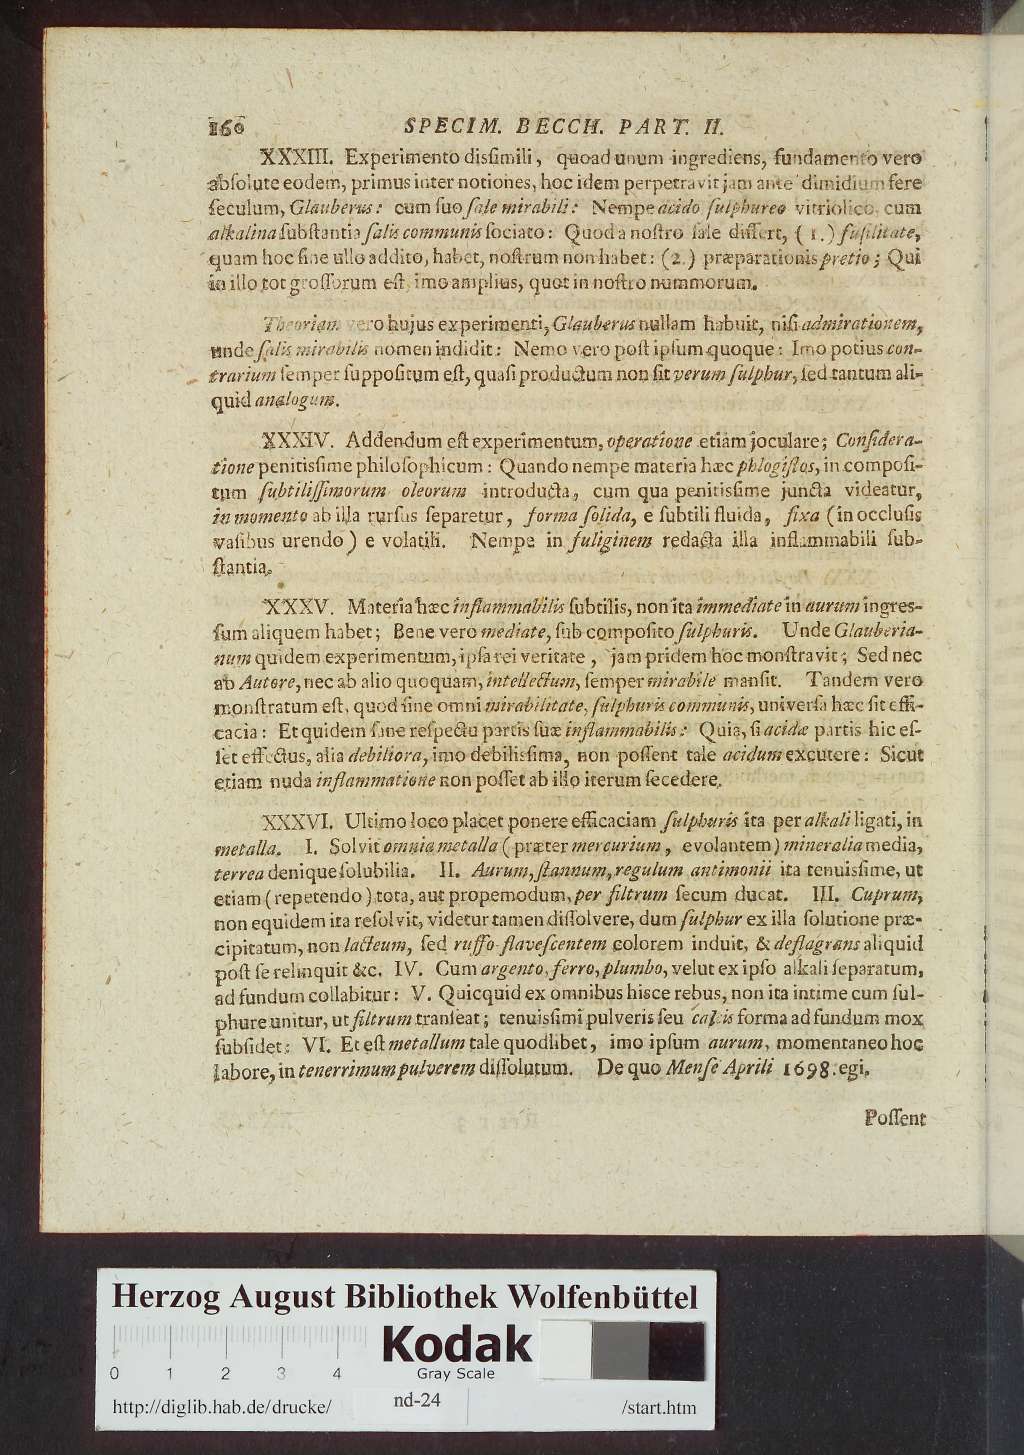 160 SPECIM. BECCH. PART. II.
XXXIII. Experimento disſimili, quoad unum ingrediens, fundamento vero
abſolute eodem, primus inter notiones, hoc idem perpetravit jam ante dimidium fere
ſeculum, Glauberus: cum ſuo ſale mirabili: Nempe acido ſulphureo vitriolico, cum
alkalina ſubſtantia ſalis communis ſociato: Quod a noſtro ſale differt, (1.) fuſilitate,
quam hoc ſine ullo addito, habet, noſtrum non habet: (2.) præparationis pretio; Qui
in illo tot groſſorum eſt, imo amplius, quot in noſtro nummorum.
Theoriam vero hujus experimenti, Glauberus nullam habuit, niſi admirationem,
unde ſalis mirabilis nomen indidit: Nemo vero poſt ipſum quoque: Imo potius con-
trarium ſemper ſuppoſitum eſt, quaſi productum non ſit verum ſulphur, ſed tantum ali-
quid analogum.
XXXIV. Addendum eſt experimentum, operatione etiam joculare; Conſidera-
tione penitisſime philoſophicum: Quando nempe materia hæc phlogiſtos, in compoſi-
tum ſubtiliſſimorum oleorum introducta, cum qua penitisſime juncta videatur,
in momento ab illa rurſus ſeparetur, forma ſolida, e ſubtili fluida, fixa (in occluſis
vaſibus urendo) e volatili. Nempe in fuliginem redacta illa inflammabili ſub-
ſtantia.
XXXV. Materia hæc inflammabilis ſubtilis, non ita immediate in aurum ingres-
ſum aliquem habet; Bene vero mediate, ſub compoſito ſulphuris. Unde Glauberia-
num quidem experimentum, ipſa rei veritate, jam pridem hoc monſtravit; Sed nec
ab Autore, nec ab alio quoquam, intellectum, ſemper mirabile manſit. Tandem vero
monſtratum eſt, quod ſine omni mirabilitate, ſulphuris communis, univerſa hæc ſit effi-
cacia: Et quidem ſane reſpectu partis ſuæ inflammabilis: Quia, ſi acidæ partis hic eſ-
ſet effectus, alia debiliora, imo debilisſima, non poſſent tale acidum excutere: Sicut
etiam nuda inflammatione non poſſet ab illo iterum ſecedere.
XXXVI. Ultimo loco placet ponere efficaciam ſulphuris ita per alkali ligati, in
metalla. I. Solvit omnia metalla (præter mercurium, evolantem) mineralia media,
terrea denique ſolubilia. II. Aurum, ſtannum, regulum antimonii ita tenuisſime, ut
etiam (repetendo) tota, aut propemodum, per filtrum ſecum ducat. III. Cuprum,
non equidem ita reſolvit, videtur tamen diſſolvere, dum ſulphur ex illa ſolutione præ-
cipitatum, non lacteum, ſed ruffo-flaveſcentem colorem induit, & deflagrans aliquid
poſt ſe relinquit &c. IV. Cum argento, ferro, plumbo, velut ex ipſo alkali ſeparatum,
ad fundum collabitur: V. Quicquid ex omnibus hisce rebus, non ita intime cum ſul-
phure unitur, ut filtrum tranſeat; tenuisſimi pulveris ſeu calcis forma ad fundum mox
ſubſidet: VI. Et eſt metallum tale quodlibet, imo ipſum aurum, momentaneo hoc
labore, in tenerrimum pulverem diſſolutum. De quo Menſe Aprili 1698. egi.
Poſſent
Herzog August Bibliothek Wolfenbüttel
Kodak
Gray Scale
0 1 2 3 4
http://diglib.hab.de/drucke/ nd-24 /start.htm